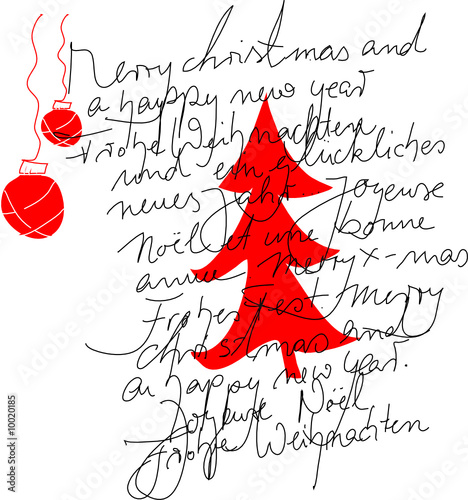 Merry christmas and
a happy new year
Frohe Weihnachten
und ein glückliches
neues Jahr Joyeuse
Noël et une bonne
année merry x-mas
Frohes Fest merry
christmas and
a happy new year.
Joyeuse Noël
Frohe Weihnachten
10020185